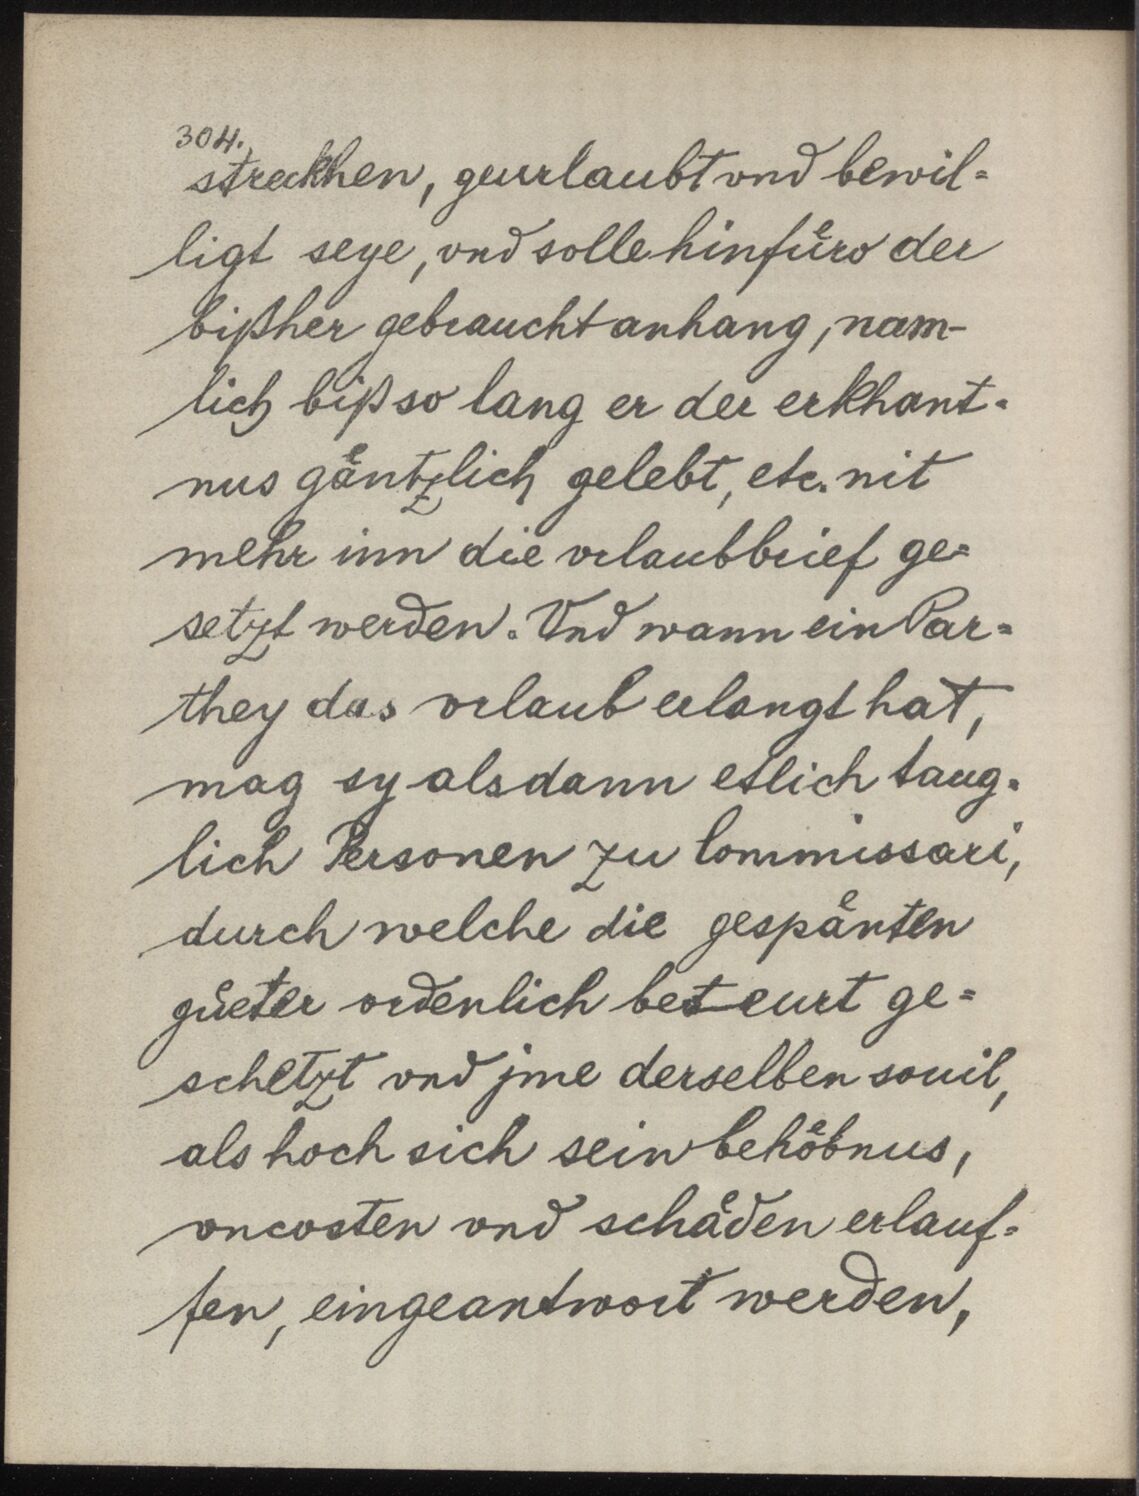 304.
streckhen, geurlaubt vnd bewil=
ligt seye, vnd solle hinfu̎ro der
bißher gebraucht anhang, nam-
lich biß so lang er der erkhant=
nus gaͤntzlich gelebt, etc. nit
mehr inn die vrlaubbrief ge=
setzt werden. Vnd wann ein Par=
they das vrlaub erlangt hat,
mag sy alsdann etlich taug=
lich Personen zu Commissari,
durch welche die gespaͤnten
guͤeter ordenlich beteurt ge=
schetzt vnd jme derselben souil,
als hoch sich sein behoͤbnus,
vncosten vnd schaͤden erlauf=
fen, eingeantwort werden,